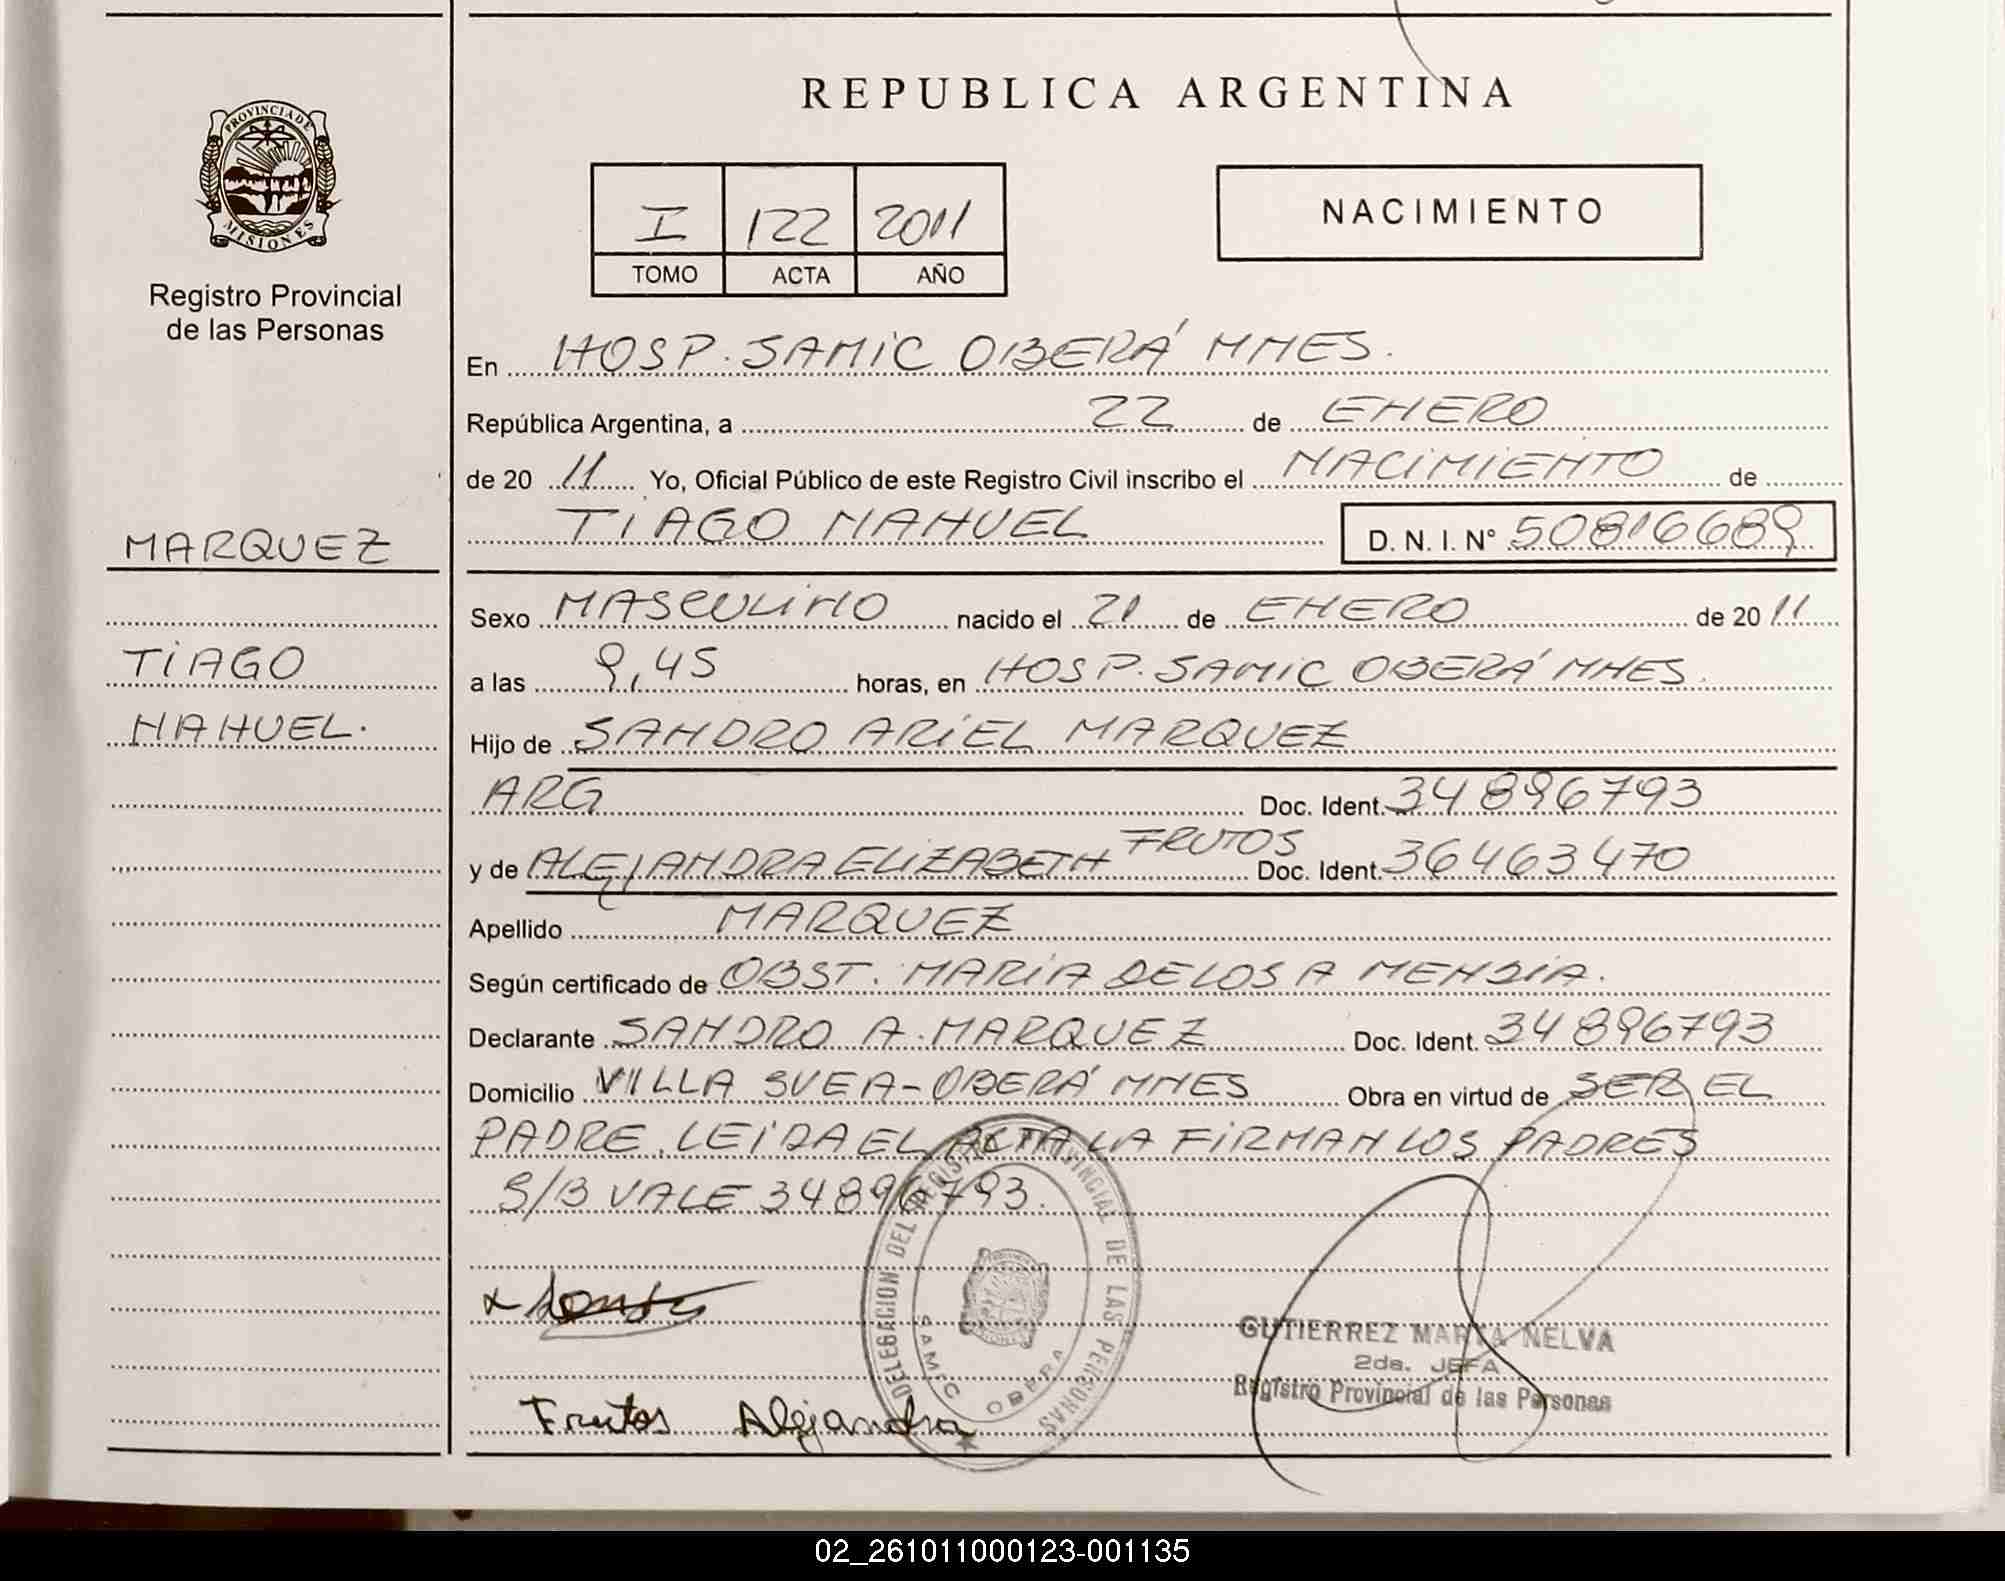 REPUBLICA ARGENTINA
PROVINCIA DE
MISIONES
Registro Provincial
de las Personas
I 122 2011
TOMO ACTA AÑO
NACIMIENTO
En HOSP. SAMIC OBERÁ MNES.
República Argentina, a 22 de ENERO
de 20 11 Yo, Oficial Público de este Registro Civil inscribo el NACIMIENTO de
TIAGO NAHUEL D. N. I. N° 50816689
MARQUEZ
TIAGO
NAHUEL.
Sexo MASCULINO nacido el 21 de ENERO de 20 11
a las 9,45 horas, en HOSP. SAMIC OBERÁ MNES.
Hijo de SANDRO ARIEL MARQUEZ
ARG Doc. Ident. 34896793
y de ALEJANDRA ELIZABETH FRUTOS Doc. Ident. 36463470
Apellido MARQUEZ
Según certificado de OBST. MARIA DE LOS A
Declarante SANDRO A. MARQUEZ Doc. Ident. 34896793
Domicilio VILLA SVEA-OBERÁ MNES Obra en virtud de SER EL
PADRE. LEIDA EL ACTA LA FIRMAN LOS PADRES
S/B VALE 34896793.
DELEGACION DEL REGISTRO PROVINCIAL DE LAS PERSONAS
SAMIC OBERA
GUTIERREZ MARTA NELVA
2da. JEFA
Registro Provincial de las Personas
Frutos Alejandra
02_261011000123-001135